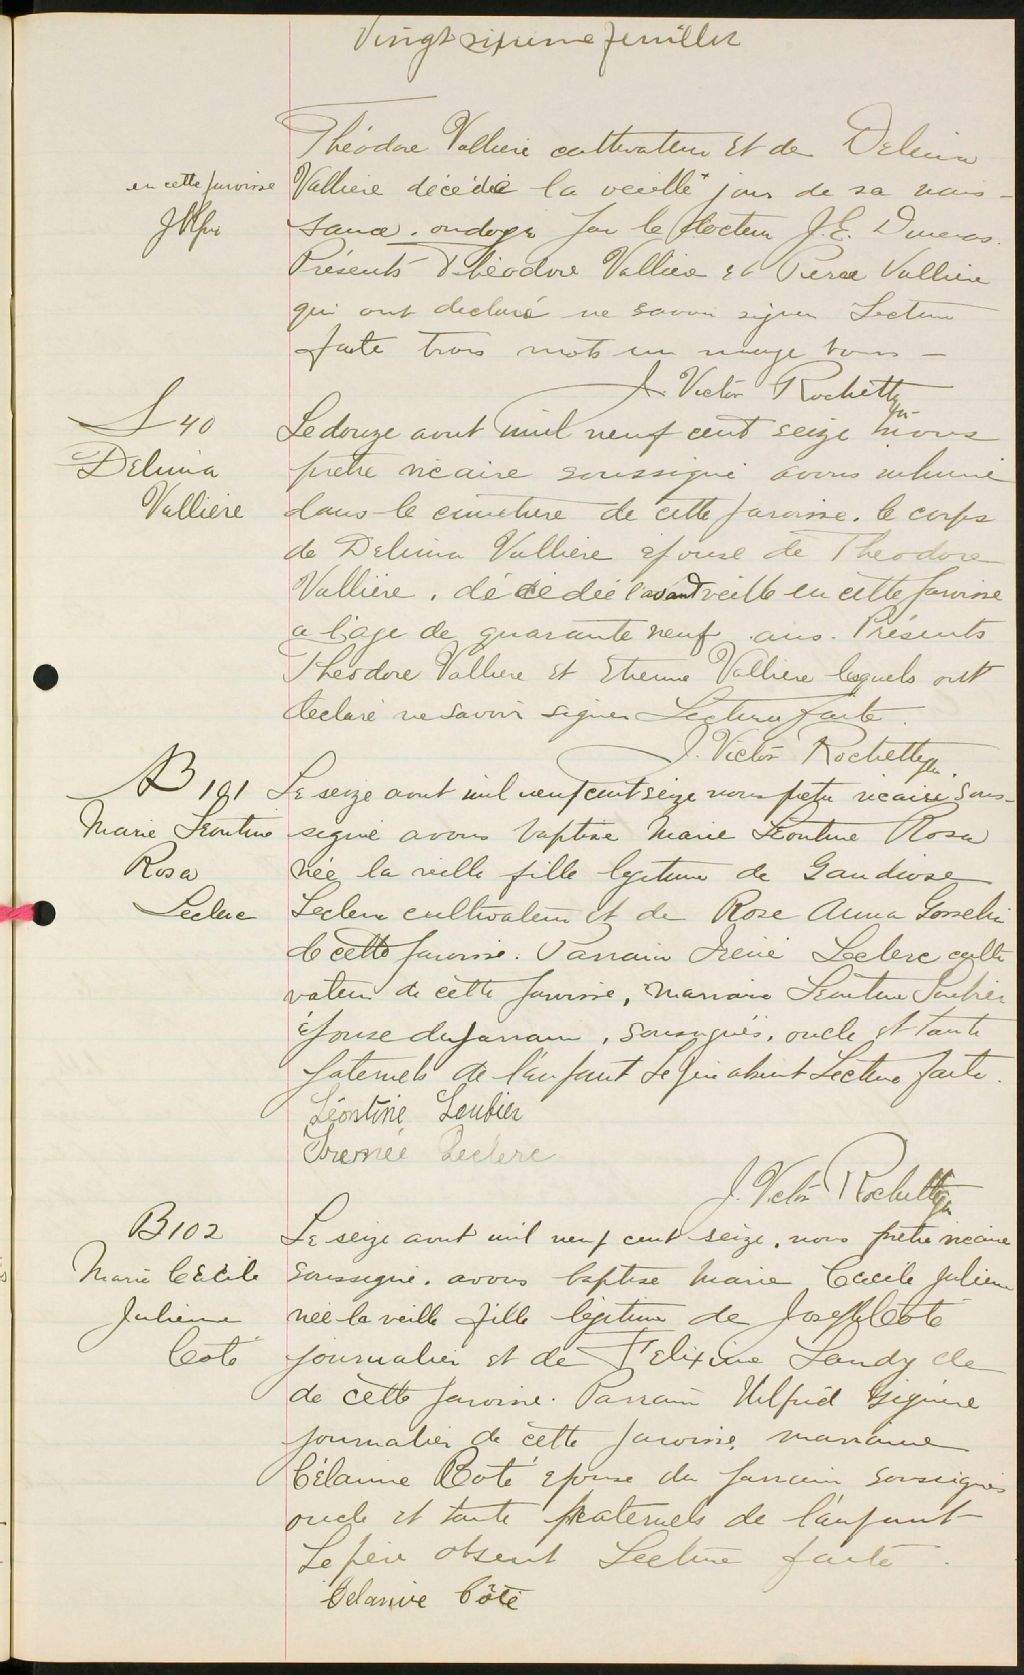 Vingt sixieme feuillet
Théodore Vallière cultivateur et de Delima
en cette paroisse
Vallière décédée la veille jour de sa nais-
sance. ondoyé par le docteur J. E.
Présents Théodore Vallière et Pierre Vallière
qui ont declaré ne savoir signer Lecture
faite trois mots en marge bons -
J. Victor Rochette ptr
S 40
Delima
Vallière
Le douze aout mil neuf cent seize nous
prêtre vicaire soussigné avons inhumé
dans le cimetiere de cette paroisse. le corps
de Delima Vallière épouse de Theodore
Vallière, décédée l'avant veille en cette paroisse
a l'age de quarante neuf ans. Présents
Théodore Valliere et Etienne Valliere lesquels ont
declaré ne savoir signer Lecture faite.
J. Victor Rochette ptr.
B 101
Marie Leontine
Rosa
Leclerc
Le seize aout mil neuf cent seize nous pretre vicaire sous-
signé avons baptisé Marie Leontine Rosa
née la veille fille legitime de Gaudiose
Leclerc cultivateur et de Rose Anna Gosselin
de cette paroisse. Parrain Irené Leclerc culti
vateur de cette paroisse, marraine Leontine Loubier
épouse du parrain, soussignés, oncle et tante
paternels de l'enfant le père absent Lecture faite.
Léontine Loubier
Leclerc
J. Victor Rochette ptr
B 102
Marie Cécile
Julienne
Coté
Le seize aout mil neuf cent seize, nous prêtre vicaire
soussigné. avons baptisé Marie Cecile Julienne
née la veille fille légitime de Joseph Coté
journalier et de Felixine Landy de
de cette paroisse. Parrain Wilfrid Giguère
journalier de cette paroisse, marraine
Célanire Coté épouse du parrain soussignés
oncle et tante paternels de l'enfant
Le père absent Lecture faite.
Célanire Côté